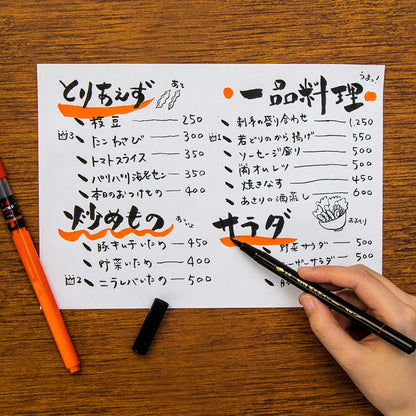 とりあえず
枝豆 250
たこわさび 300
トマトスライス 350
パリパリ海老セン 350
本日のおつけもの 400
炒めもの
豚キムチいため 450
野菜いため 400
ニラレバいため 500
うまっ!
一品料理
刺身の盛り合わせ 1,250
若どりのから揚げ 550
ソーセージ盛り 500
オムレツ 500
焼きなす 450
あさりの酒蒸し 600
サラダ
野菜サラダ 500
ーザーサラダ 500
500